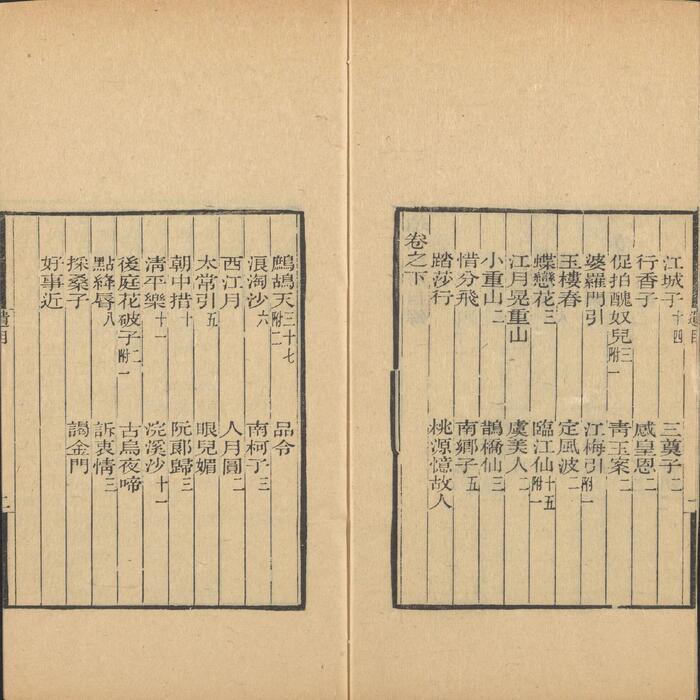 江城子十四　三奠子二
行香子　感皇恩二
促拍醜奴兒三附一　靑玉案二
婆羅門引　江梅引附一
玉樓春　定風波二
蝶戀花三　臨江仙十五附一
江月晃重山　虞美人二
小重山二　鵲橋仙三
惜分飛　南鄉子五
踏莎行　桃源憶故人
卷之下
鷓鴣天三十七附二　品令
浪淘沙六　南柯子三
西江月　人月圓二
太常引五　眼兒媚
朝中措十　阮郞歸三
淸平樂十一　浣溪沙十一
後庭花破子二附一　古烏夜啼
點絳脣八　訴衷情三
採桑子　謁金門
好事近